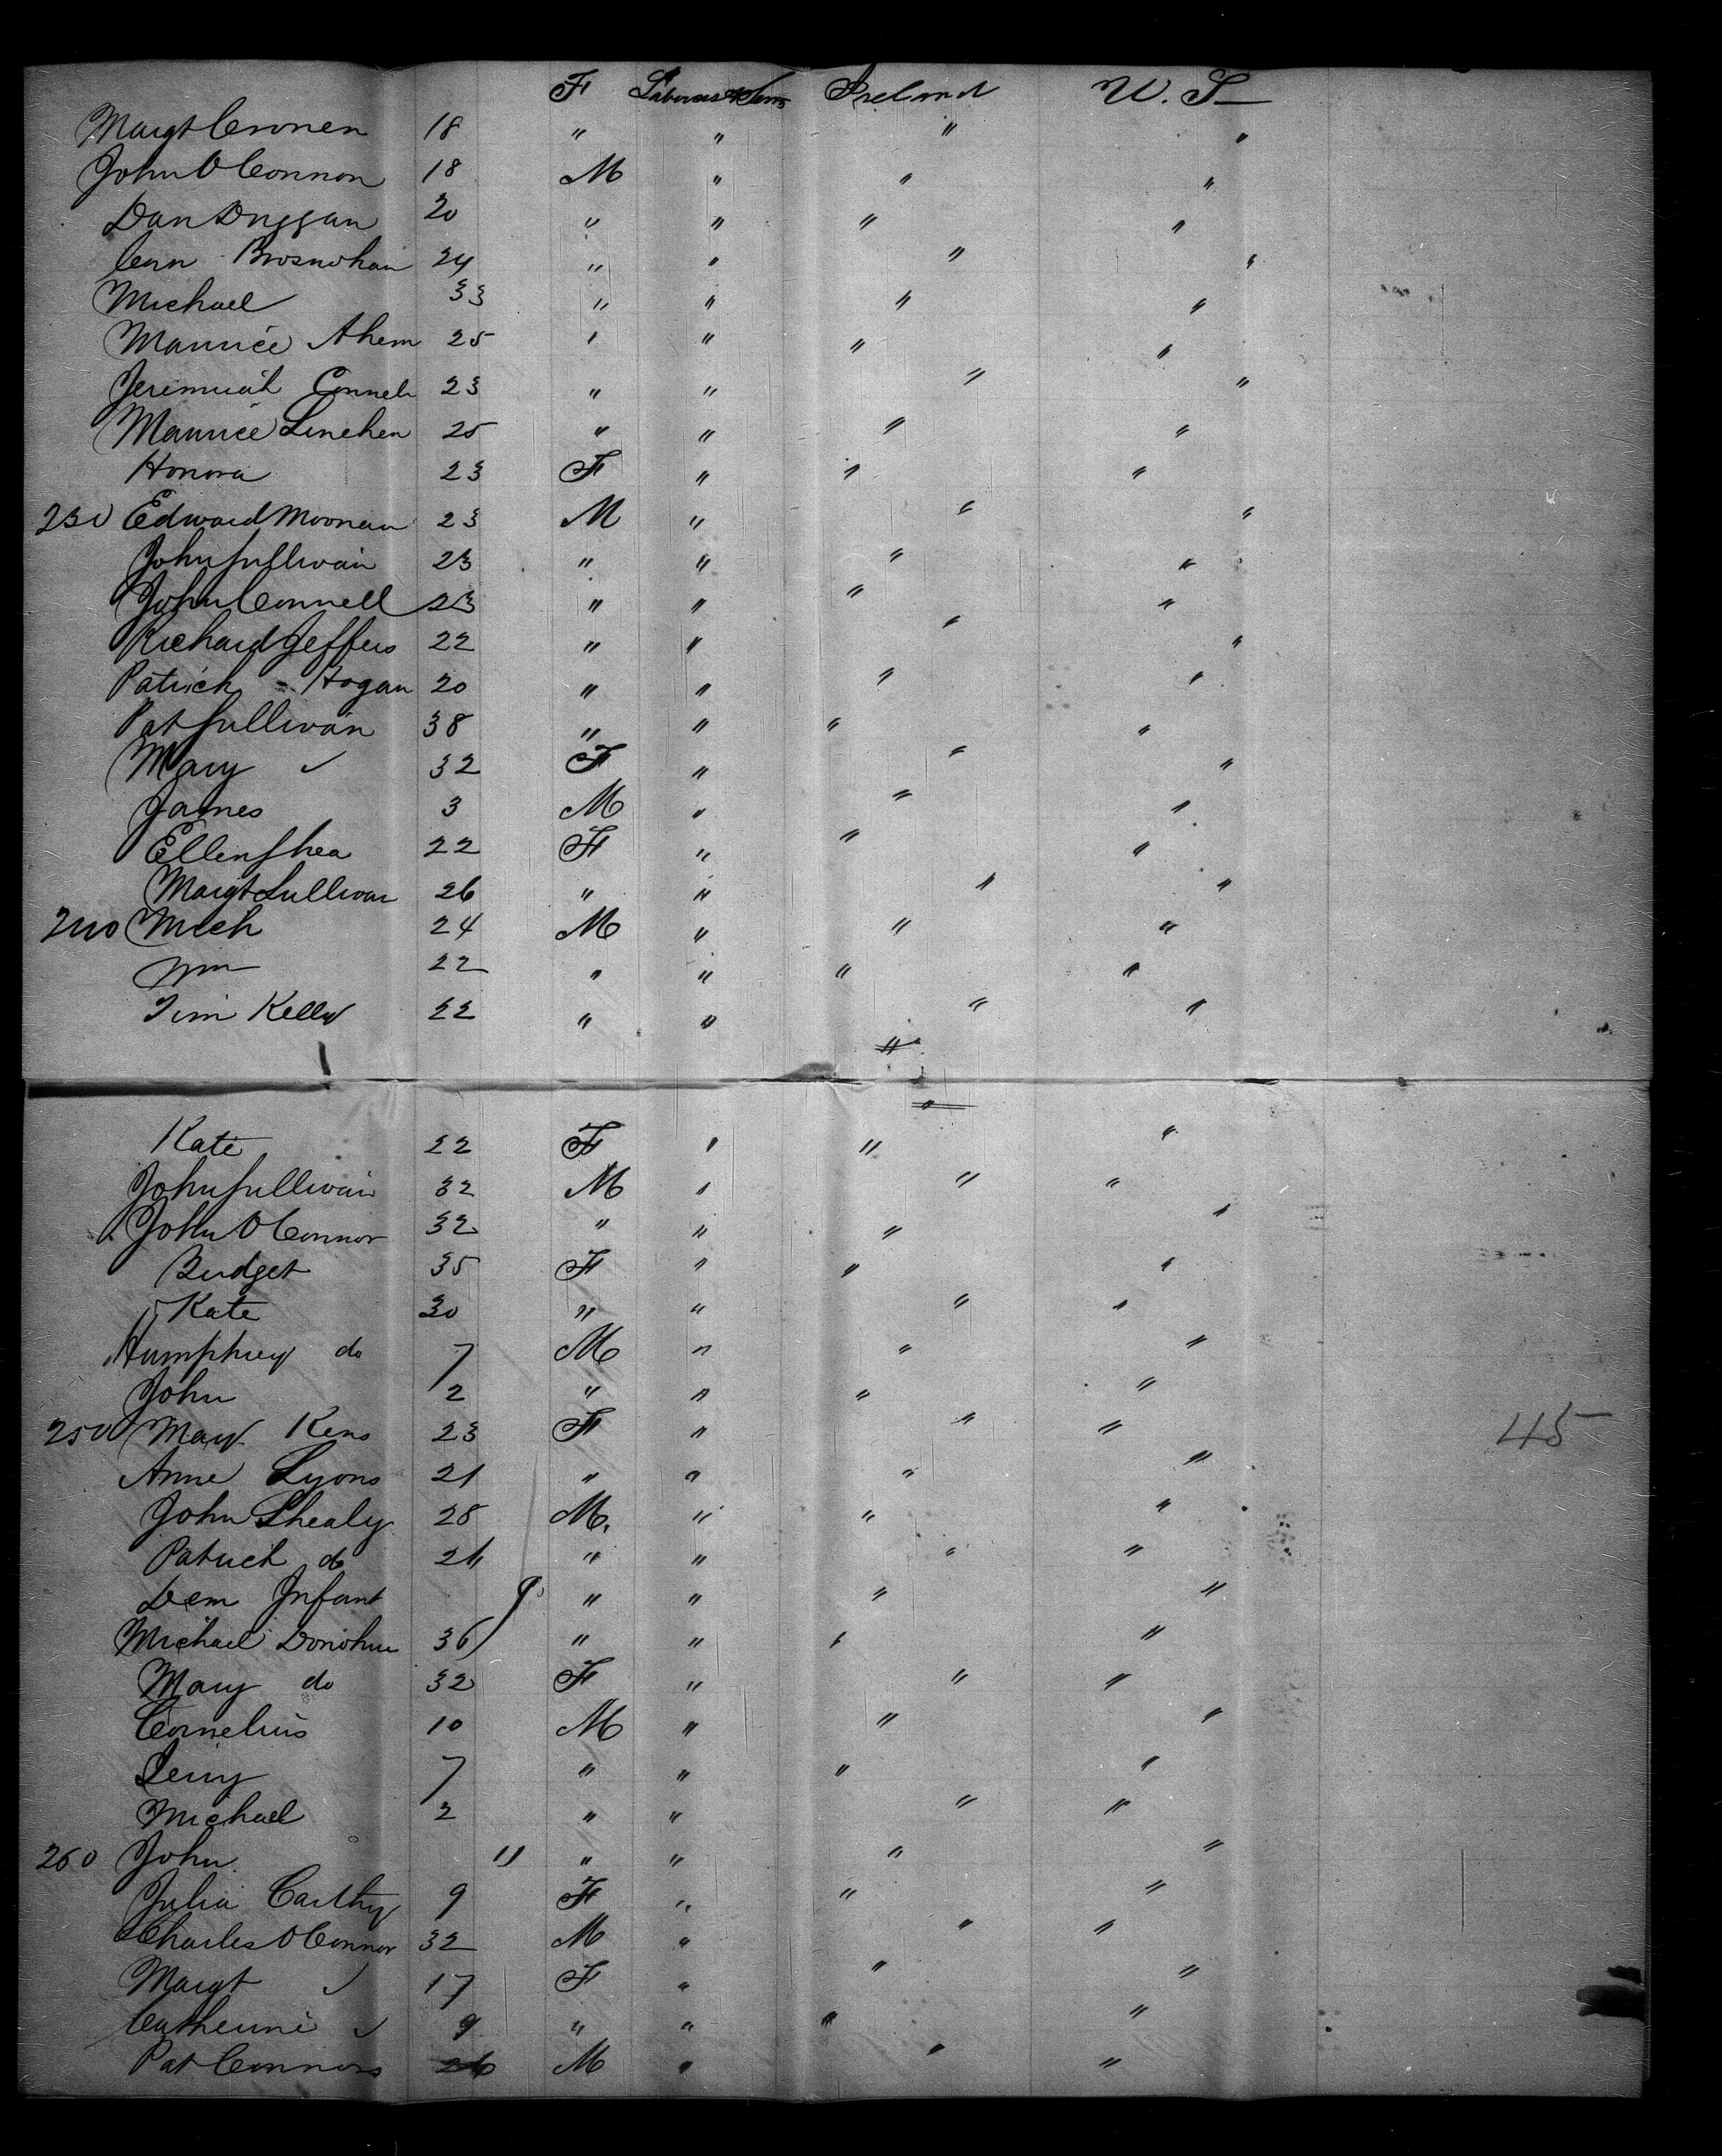 F Ireland U. S
Margt Cronen 18 " " " "
John O Connor 18 M " " "
Dan Duggan 20 " " " "
Corn Brosnohan 24 " " " "
Michael 33 " " " "
Maurice Ahern 25 " " " "
Jeremiah Connell 23 " " " "
Maurice Linehen 25 " " " "
Honora 23 F " " "
230 Edward Moonan 23 M " " "
John Sullivan 23 " " " "
John Connell 23 " " " "
Richard Jeffers 22 " " " "
Patrick Hogan 20 " " " "
Pat Sullivan 38 " " " "
Mary ✓ 32 F " " "
James 3 M " " "
Ellen Shea 22 F " " "
Margt Sullivan 26 " " " "
240 Mich 24 M " " "
Wm 22 " " " "
Tim Kelly 22 " " " "
"
"
Kate 22 F " " "
John Sullivan 32 M " " "
John O Connor 32 " " " "
Bridget 35 F " " "
Kate 30 " " " "
Humphrey do 7 M " " "
John 2 " " " "
250 Mary Kens 23 F " " "
45
Anne Lyons 21 " " " "
John Shealy 28 M. " " "
Patrick do " " " "
Infant " " " "
Michael Donohue 36 " " " "
Mary do 32 F " " "
Cornelius 10 M " " "
7 " " " "
Michael 2 " " " "
260 John 11 " " " "
Julia Carthy 9 F " " "
Charles O Connor 32 M " " "
Margt ✓ 17 F " " "
Catherine ✓ 9 " " " "
Pat Connors 26 M " " "